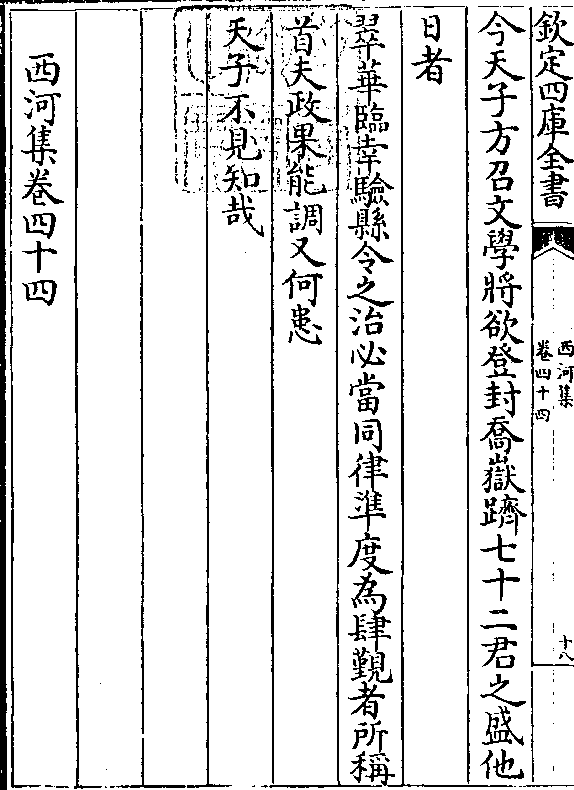 欽定四庫全書
西河集
卷四十四
十八
今天子方召文學將欲登封喬嶽躋七十二君之盛他
日者
翠華臨幸驗縣令之治必當同律準度為肆覲者所稱
首夫政果能調又何患
天子不見知哉
西河集卷四十四